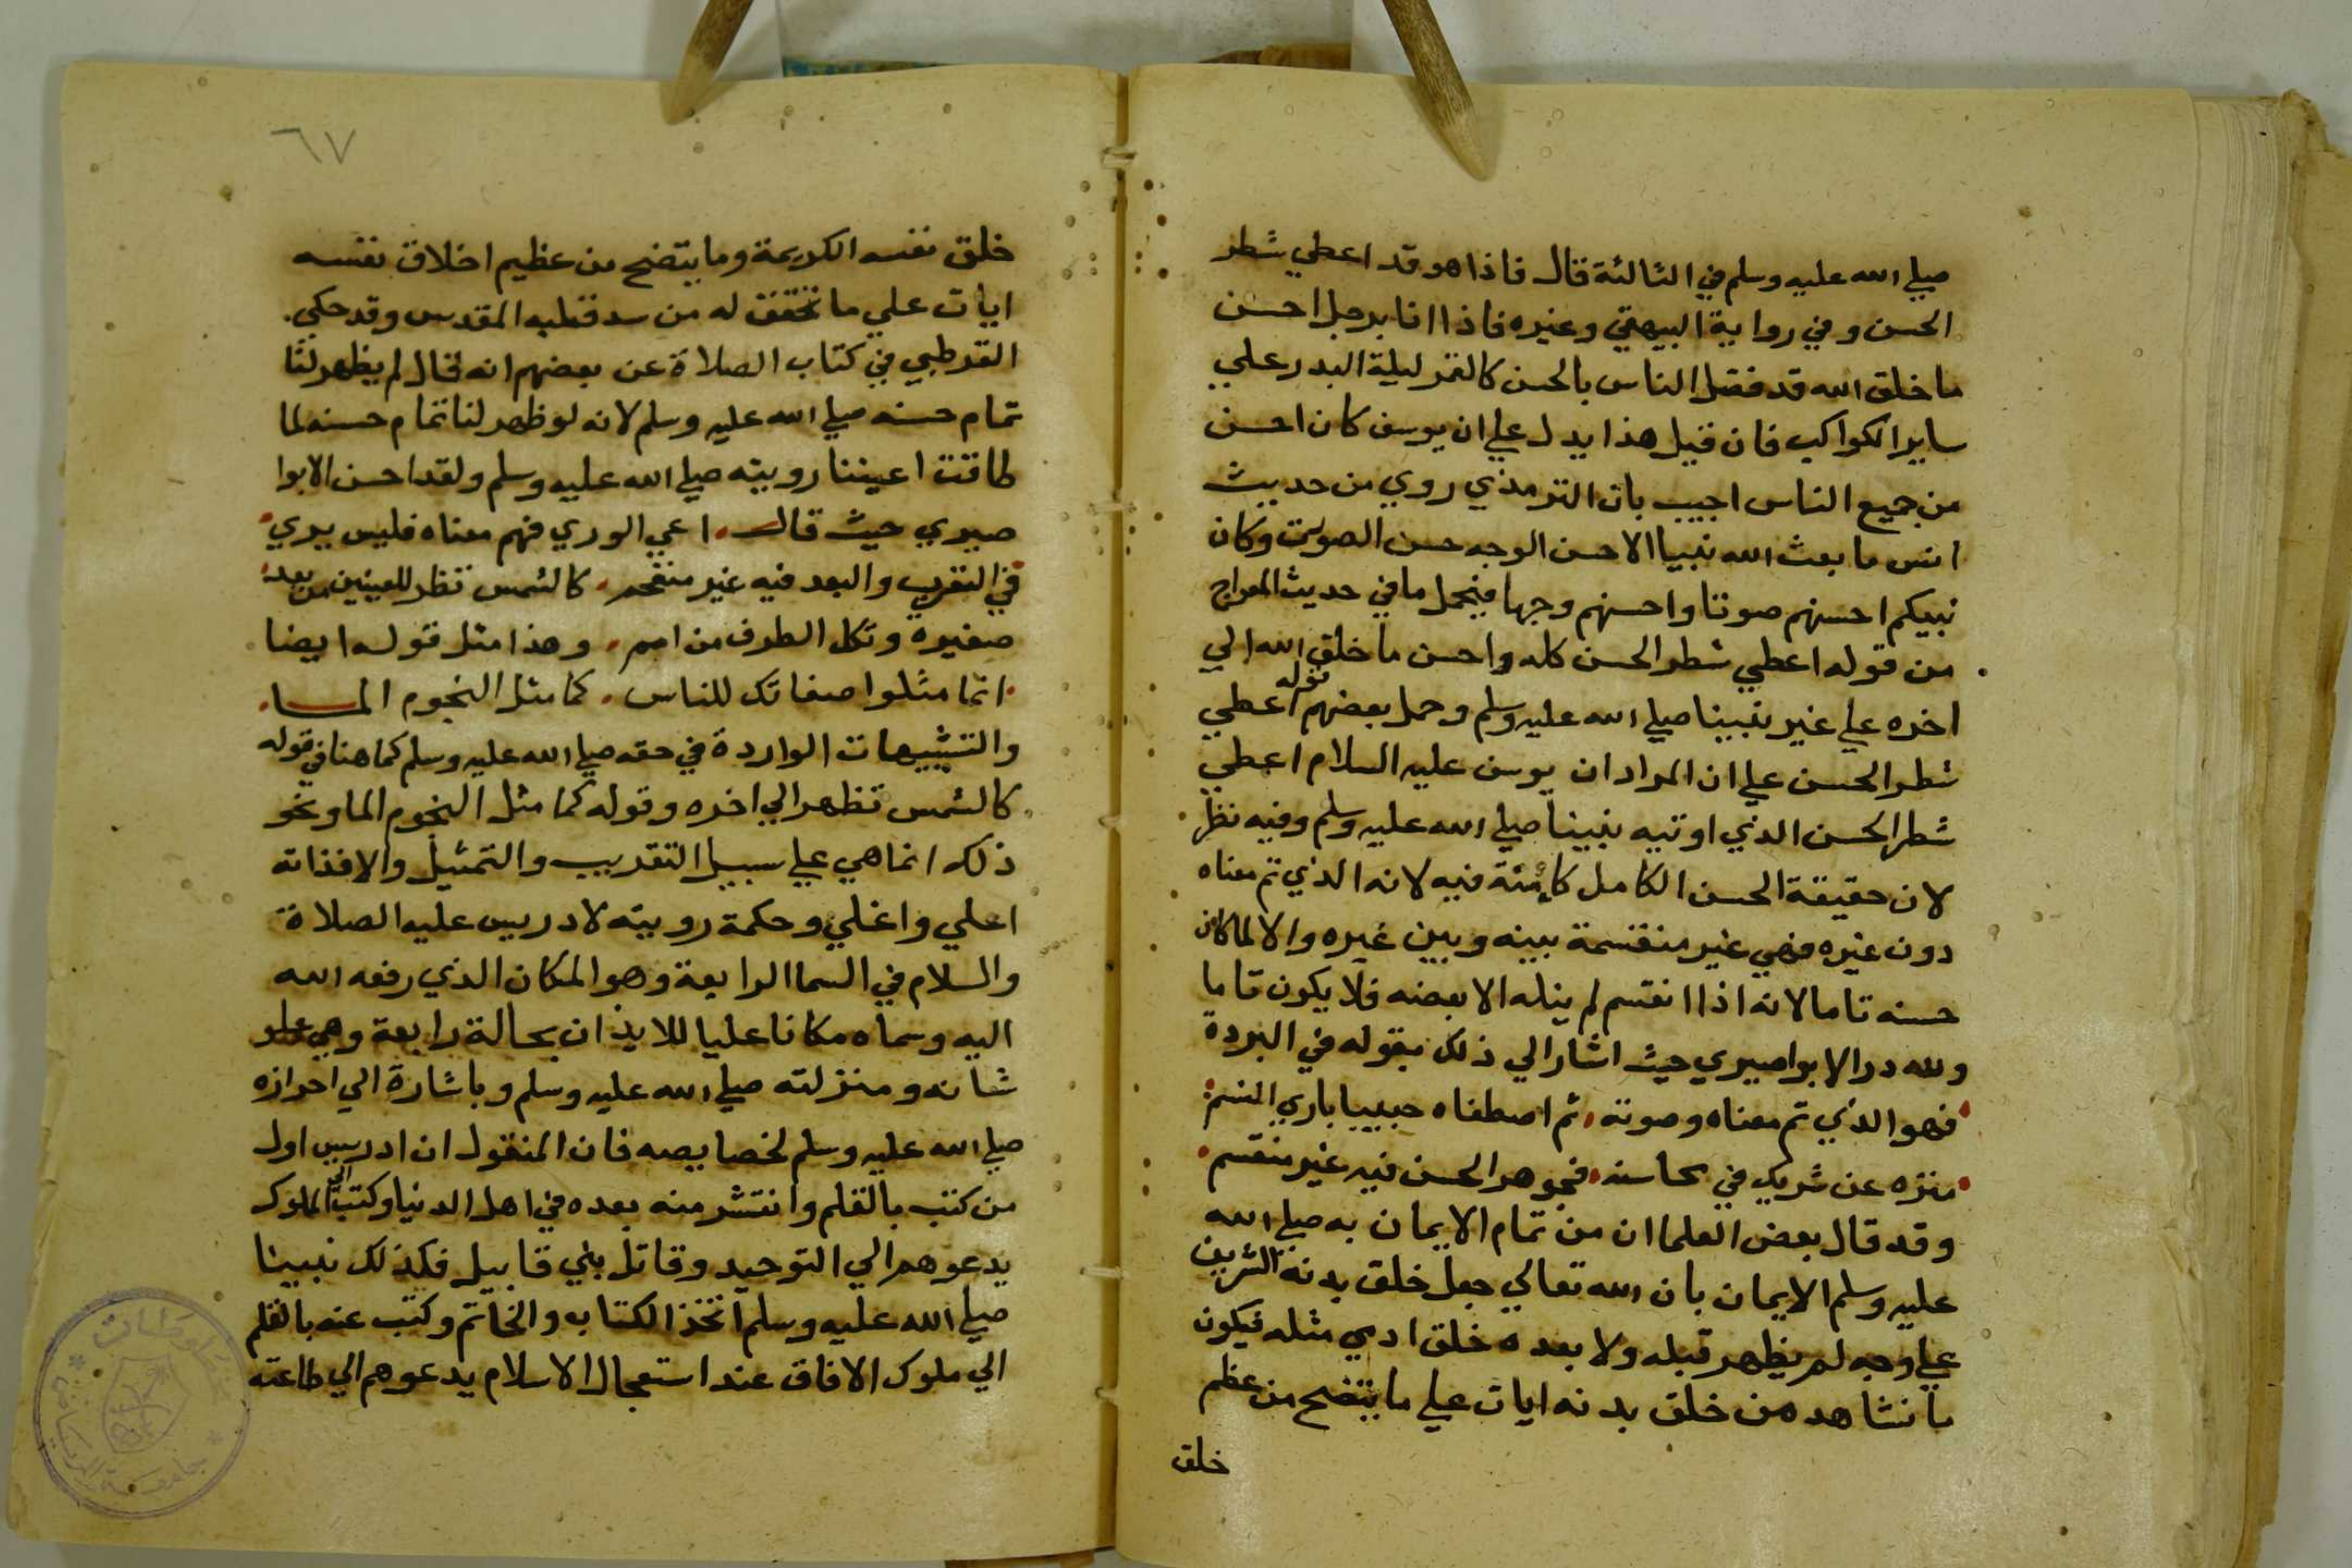 صلي الله عليه وسلم في الثالثة قال فاذا هو قد اعطي شطر
الحسن وفي رواية البيهقي وغيره فاذا انا برجل احسن
ما خلق الله قد فضل الناس بالحسن كالقمر ليلة البدر علي
ساير الكواكب فان قيل هذا يدل علي ان يوسف كان احسن
من جميع الناس اجيب بان الترمذي روي من حديث
انس ما بعث الله نبيا الا حسن الوجه حسن الصوت وكان
نبيكم احسنهم صوتا واحسنهم وجها فيحمل ما في حديث المعراج
من قوله اعطي شطر الحسن كله واحسن ما خلق الله الي
اخره علي غير نبينا صلي الله عليه وسلم وحمل بعضهم قوله اعطي
شطر الحسن علي ان المراد ان يوسف عليه السلام اعطي
شطر الحسن الذي اوتيه نبينا صلي الله عليه وسلم وفيه نظر
لان حقيقة الحسن الكامل كائنة فيه لانه الذي تم معناه
دون غيره فهي غير منقسمة بينه وبين غيره والا لما كان
حسنه تاما لانه اذا انقسم لم ينله الا بعضه فلا يكون تاما
ولله در الابواصيري حيث اشار الي ذلك بقوله في البردة
فهو الذي تم معناه وصوته ثم اصطفاه حبيبا باري النسم
منزه عن شريك في محاسنه فجوهر الحسن فيه غير منقسم
وقد قال بعض العلما ان من تمام الايمان به صلي الله
عليه وسلم الايمان بان الله تعالي جعل خلق بدنه الشريف
علي وجه لم يظهر قبله ولا بعده خلق ادمي مثله فيكون
ما نشاهد من خلق بدنه ايات علي ما يتضح من عظم
خلق
٦٧
خلق نفسه الكريمة وما يتضح من عظيم اخلاق نفسه
ايات علي ما تحقق له من سر قلبه المقدس وقد حكي
القرطبي في كتاب الصلاة عن بعضهم انه قال لم يظهر لنا
تمام حسنه صلي الله عليه وسلم لانه لو ظهر لنا تمام حسنه لما
طاقت اعيننا رويته صلي الله عليه وسلم ولقد احسن الابوا
صيري حيث قال اعي الوري فهم معناه فليس يري
في القرب والبعد فيه غير منفحم كالشمس تظهر للعينين من بعد
صغيرة وتكل الطرف من امم وهذا مثل قوله ايضا
انما مثلوا صفاتك للناس كما مثل النجوم الما
والتشبيهات الواردة في حقه صلي الله عليه وسلم كما هنا في قوله
كالشمس تظهر الي اخره وقوله كما مثل النجوم الما ونحو
ذلك انما هي علي سبيل التقريب والتمثيل والا فذاته
اعلي واغلي وحكمة رويته لادريس عليه الصلاة
والسلام في السما الرابعة وهو المكان الذي رفعه الله
اليه وسماه مكانا عليا للايذان بحالة رابعة وهي علو
شانه ومنزلته صلي الله عليه وسلم وباشارة الي احرازه
صلي الله عليه وسلم لخصايصه فان المنقول ان ادريس اول
من كتب بالقلم وانتشر منه بعده في اهل الدنيا وكتب الي الملوك
يدعوهم الي التوحيد وقاتل بني قابيل فكذلك نبينا
صلي الله عليه وسلم اتخذ الكتابه والخاتم وكتب عنه بالقلم
الي ملوك الافاق عند استعجال الاسلام يدعوهم الي طاعته